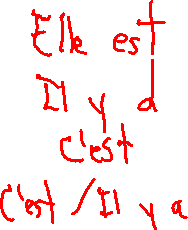 Elle est
Il y a
C'est
C'est / Il y a